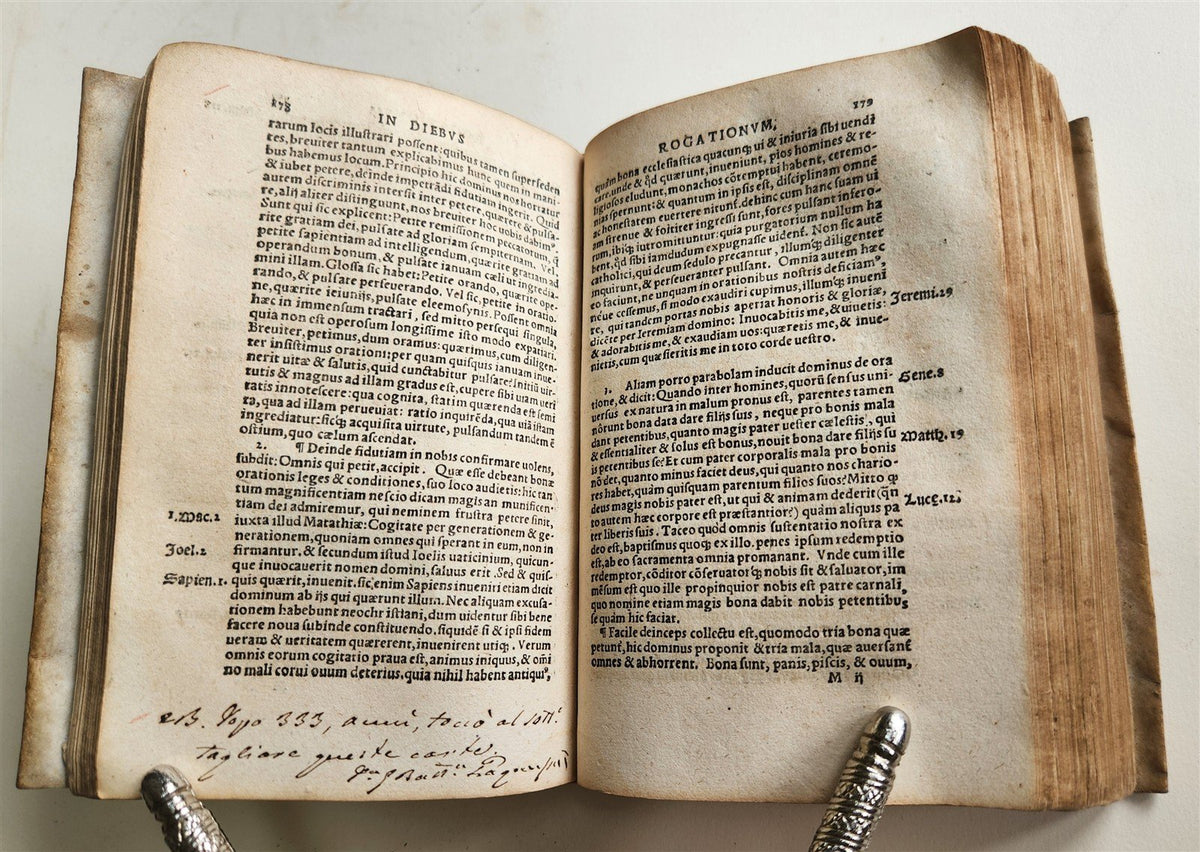 178
IN DIEBVS
rarum locis illuſtrari poſſent: quibus tamen ſuperſeden
tes, breuiter tantum explicabimus hunc quem in mani-
bus habemus locum. Principio hic dominus nos hortatur
& iubet petere, deinde impetrãdi fidutiam ingerit. Quid
autem diſcriminis interſit inter petere, quærere & pulſa-
re, alij aliter diſtinguunt, nos breuiter hoc uobis dabimꝰ.
Sunt qui ſic explicent: Petite remiſſionem peccatorum, q̃
rite gratiam dei, pulſate ad gloriam ſempiternam. Vel,
petite ſapientiam ad intelligendum, quærite gratiam ad
operandum bonum, & pulſate ianuam cæli ut ingredia-
mini illam. Gloſſa ſic habet: Petite orando, quærite ope-
rando, & pulſate perſeuerando. Vel ſic, petite in oratio-
ne, quærite ieiunijs, pulſate eleemoſynis. Poſſent omnia
hæc in immenſum tractari, ſed mitto perſequi ſingula,
quia non eſt operoſum longiſſime iſto modo expatiari.
Breuiter, petimus, dum oramus: quærimus, cum diligen-
ter inſiſtimus orationi: per quam quiſquis ianuam inue-
nerit uitæ & ſalutis, quid cunctabitur pulſare? Initiũ uir-
tutis & magnus ad illam gradus eſt, cupere ſibi uiam ueri
tatis innoteſcere: qua cognita, ſtatim quærenda eſt ſemi
ta, qua ad illam perueniat: ratio inquirẽda, qua uiã iſtam
ingrediatur: ſicq; acquiſita uirtute, pulſandum tandem ẽ
oſtium, quo cælum aſcendat.
2. ¶ Deinde fidutiam in nobis confirmare uolens,
ſubdit: Omnis qui petit, accipit. Quæ eſſe debeant bonæ
orationis leges & conditiones, ſuo loco audietis: hic tan
tum magnificentiam neſcio dicam magis an munificen-
tiam dei admiremur, qui neminem fruſtra petere ſinit,
1. Mac. 2 iuxta illud Matathiæ: Cogitate per generationem & ge-
nerationem, quoniam omnes qui ſperant in eum, non in
Joel. 2 firmantur. & ſecundum iſtud Ioelis uaticinium, quicun-
que inuocauerit nomen domini, ſaluus erit. Sed & quiſ-
Sapien. 1. quis quærit, inuenit. ſic enim Sapiens inueniri etiam dicit
dominum ab ijs qui quærunt illum. Nec aliquam excuſa-
tionem habebunt neochriſtiani, dum uidentur ſibi bene
facere noua ſubinde conſtituendo. ſiquidẽ ſi & ipſi fidem
ueram & ueritatem quærerent, inuenirent utiq;. Verum
omnis eorum cogitatio praua eſt, animus iniquus, & om̃i
no mali corui ouum deterius, quia nihil habent antiquiꝰ,
333,
tagliare queste carte.
179
ROGATIONVM,
quàm bona eccleſiaſtica quacunq; ui & iniuria ſibi uendi
care, unde & q̃d quærunt, inueniunt, pios homines & re-
ligioſos eludunt, monachos cõtemptui habent, ceremo-
nias ſpernunt: & quantum in ipſis eſt, diſciplinam omnẽ
ac honeſtatem euertere nitunt̃. dehinc cum hanc ſuam ui
am ſtrenue & fortiter ingreſſi ſunt, fores pulſant infero-
rum, ibiq; intromittuntur: quia purgatorium nullum ha
bent, q̃d ſibi iamdudum expugnaſſe uident̃. Non ſic autẽ
catholici, qui deum ſedulo precantur, illumq; diligenter
inquirunt, & perſeueranter pulſant. Omnia autem hæc
eo faciunt, ne unquam in orationibus noſtris deficiamꝰ,
neue ceſſemus, ſi modo exaudiri cupimus, illumq; inueni
re, qui tandem portas nobis aperiat honoris & gloriæ,
dicẽte per Ieremiam domino: Inuocabitis me, & uiuetis: Jeremi. 29
& adorabitis me, & exaudiam uos: quæretis me, & inue-
nietis, cum quæſieritis me in toto corde ueſtro.
3. Aliam porro parabolam inducit dominus de ora
tione, & dicit: Quando inter homines, quorũ ſenſus uni- Gene. 8
uerſus ex natura in malum pronus eſt, parentes tamen
nôrunt bona data dare filijs ſuis, neque pro bonis mala
dant petentibus, quanto magis pater ueſter cæleſtis, qui
& eſſentialiter & ſolus eſt bonus, nouit bona dare filijs ſu Matth. 19
is petentibus ſe? Et cum pater corporalis mala pro bonis
nõ det, quanto minus faciet deus, qui quanto nos chario-
res habet, quàm quiſquam parentum filios ſuos? Mitto ꝙ
deus magis nobis pater eſt, ut qui & animam dederit (q̃n Luce. 12.
to autem hæc corpore eſt præſtantior?) quàm aliquis pa
ter liberis ſuis. Taceo quòd omnis ſuſtentatio noſtra ex
deo eſt, baptiſmus quoq; ex illo. penes ipſum redemptio
eſt, ab eo ſacramenta omnia promanant. Vnde cum ille
redemptor, cõditor cõſeruatorq; nobis ſit & ſaluator, im
mẽſum eſt quo ille propinquior nobis eſt patre carnali,
quo nomine etiam magis bona dabit nobis petentibus
ſe quàm hic faciat.
¶ Facile deinceps collectu eſt, quomodo tria bona quæ
petunt̃, hic dominus proponit & tria mala, quæ auerſant̃
omnes & abhorrent. Bona ſunt, panis, piſcis, & ouum,
M ij